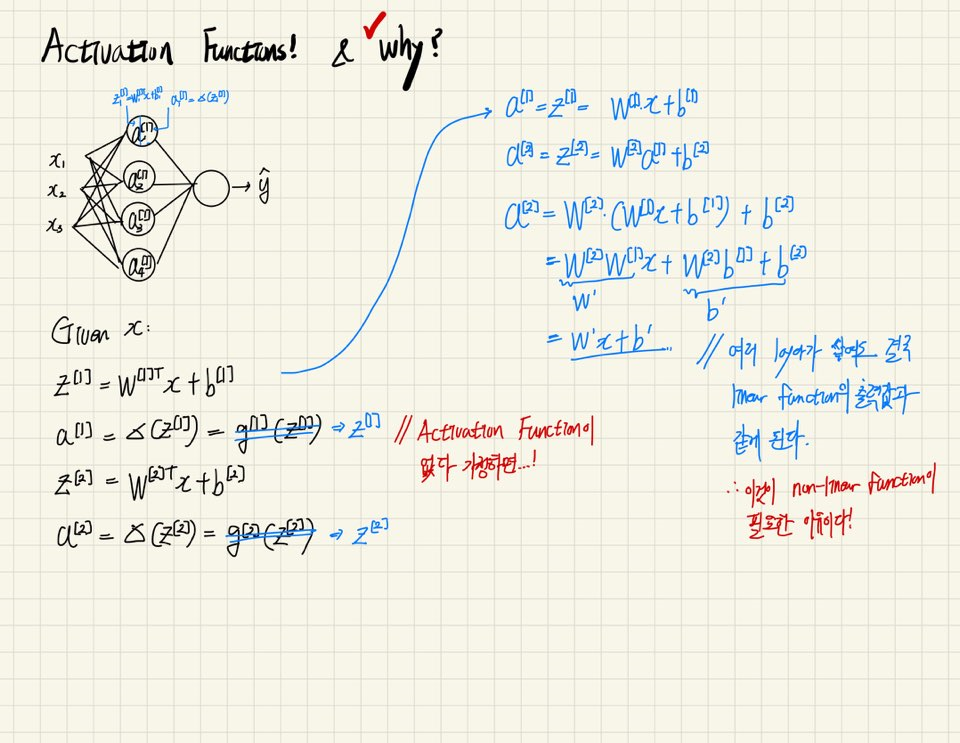 Activation Functions! & ✓ Why?
z₁^[1]=w₁^[1]x+b₁^[1]
a₁^[1]=σ(z₁^[1])
a₁^[1]
x₁
a₂^[1]
x₂
→ ŷ
x₃
a₃^[1]
a₄^[1]
Given x:
z^[1] = W^[1]T x + b^[1]
a^[1] = σ(z^[1]) = g^[1](z^[1]) ⇒ z^[1]
// Activation Function이
없다 가정하면...!
z^[2] = W^[2]T x + b^[2]
a^[2] = σ(z^[2]) = g^[2](z^[2]) ⇒ z^[2]
a^[1] = z^[1] = W^[1]·x + b^[1]
a^[2] = z^[2] = W^[2]a^[1] + b^[2]
a^[2] = W^[2]·(W^[1]x + b^[1]) + b^[2]
= W^[2]W^[1]x + W^[2]b^[1] + b^[2]
W' b'
= W'x + b'
// 여러 layer가 쌓여도 결국
linear function의 출력값과
같게 된다.
∴ 이것이 non-linear function이
필요한 이유이다!